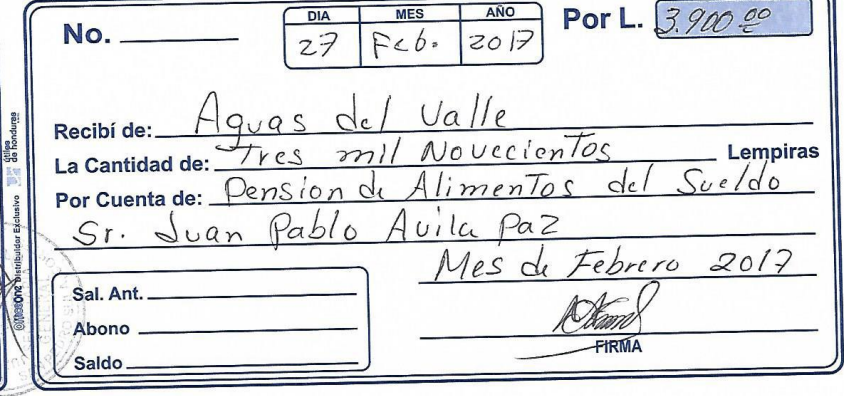 DIA MES AÑO
No. 27 Feb. 2017 Por L. 3.900 00
Recibí de: Aguas del Valle
La Cantidad de: Tres mil Novecientos Lempiras
Por Cuenta de: Pension de Alimentos del Sueldo
Sr. Juan Pablo Avila Paz
Mes de Febrero 2017
Sal. Ant.
Abono
Saldo
FIRMA
Distribuidor Exclusivo útiles de honduras